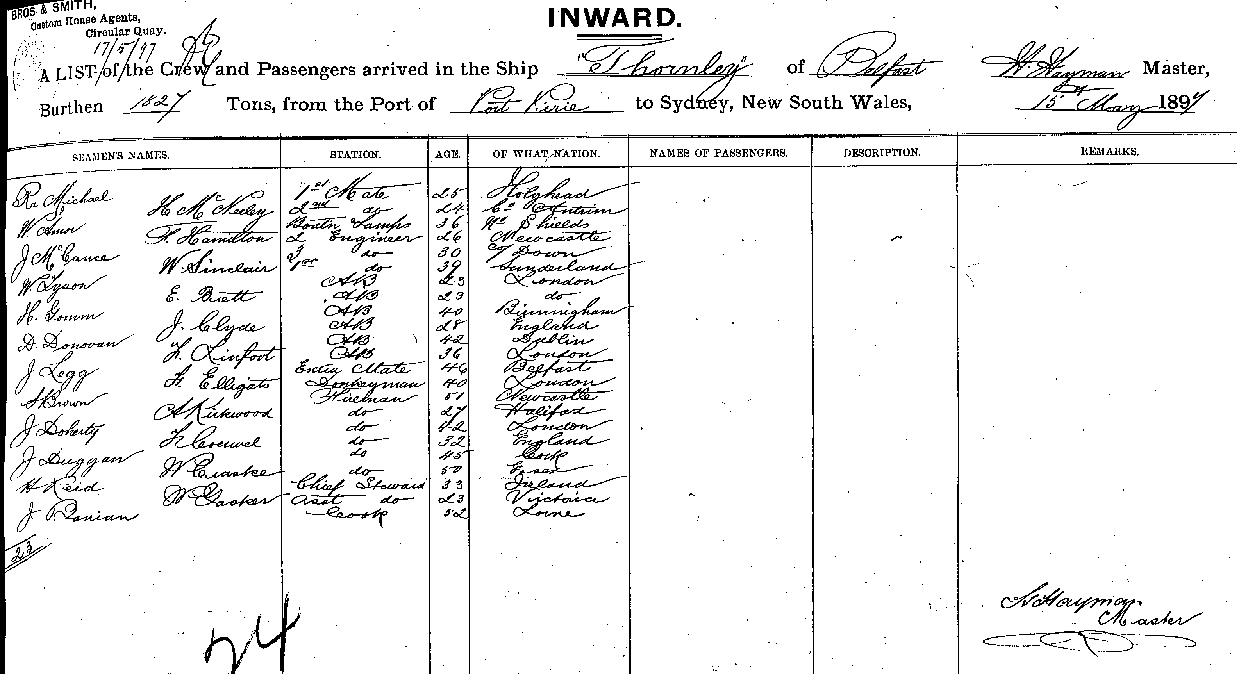 BROS & SMITH,
Custom House Agents,
Circular Quay.
17/5/97
INWARD.
A LIST of the Crew and Passengers arrived in the Ship "Thornley" of Belfast W. Hayman Master,
Burthen 1827 Tons, from the Port of Port Pirie to Sydney, New South Wales, 15 May 1897
SEAMEN'S NAMES. STATION. AGE. OF WHAT NATION. NAMES OF PASSENGERS. DESCRIPTION. REMARKS.
Rr Michael 1st Mate 25 Holyhead
H McNeeley 2nd do 24 Co Antrim
W Amor Boatn Lamps 36 No Shields
F. Hamilton 2 Engineer 26 Newcastle
J McCance 3 do 30 Co Down
W Sinclair 1st do 39 Sunderland
W Tyson AB 23 London
E. Brett AB 23 do
H. Gomm AB 40 Birmingham
J. Clyde AB 28 England
D. Donovan AB 42 Dublin
F. Linfoot AB 36 London
J Legg Extra Mate 46 Belfast
Donkeyman 40 London
S Brown Fireman 51 Newcastle
A Kirkwood do 27 Halifax
J Doherty do 42 London
do 32 England
J Duggan do 45 Cork
W Craske do 50 Essex
H Reid Chief Steward 33 Ireland
W Gasker Asst do 23 Victoria
J Cook 52
23
24
Hayman
Master